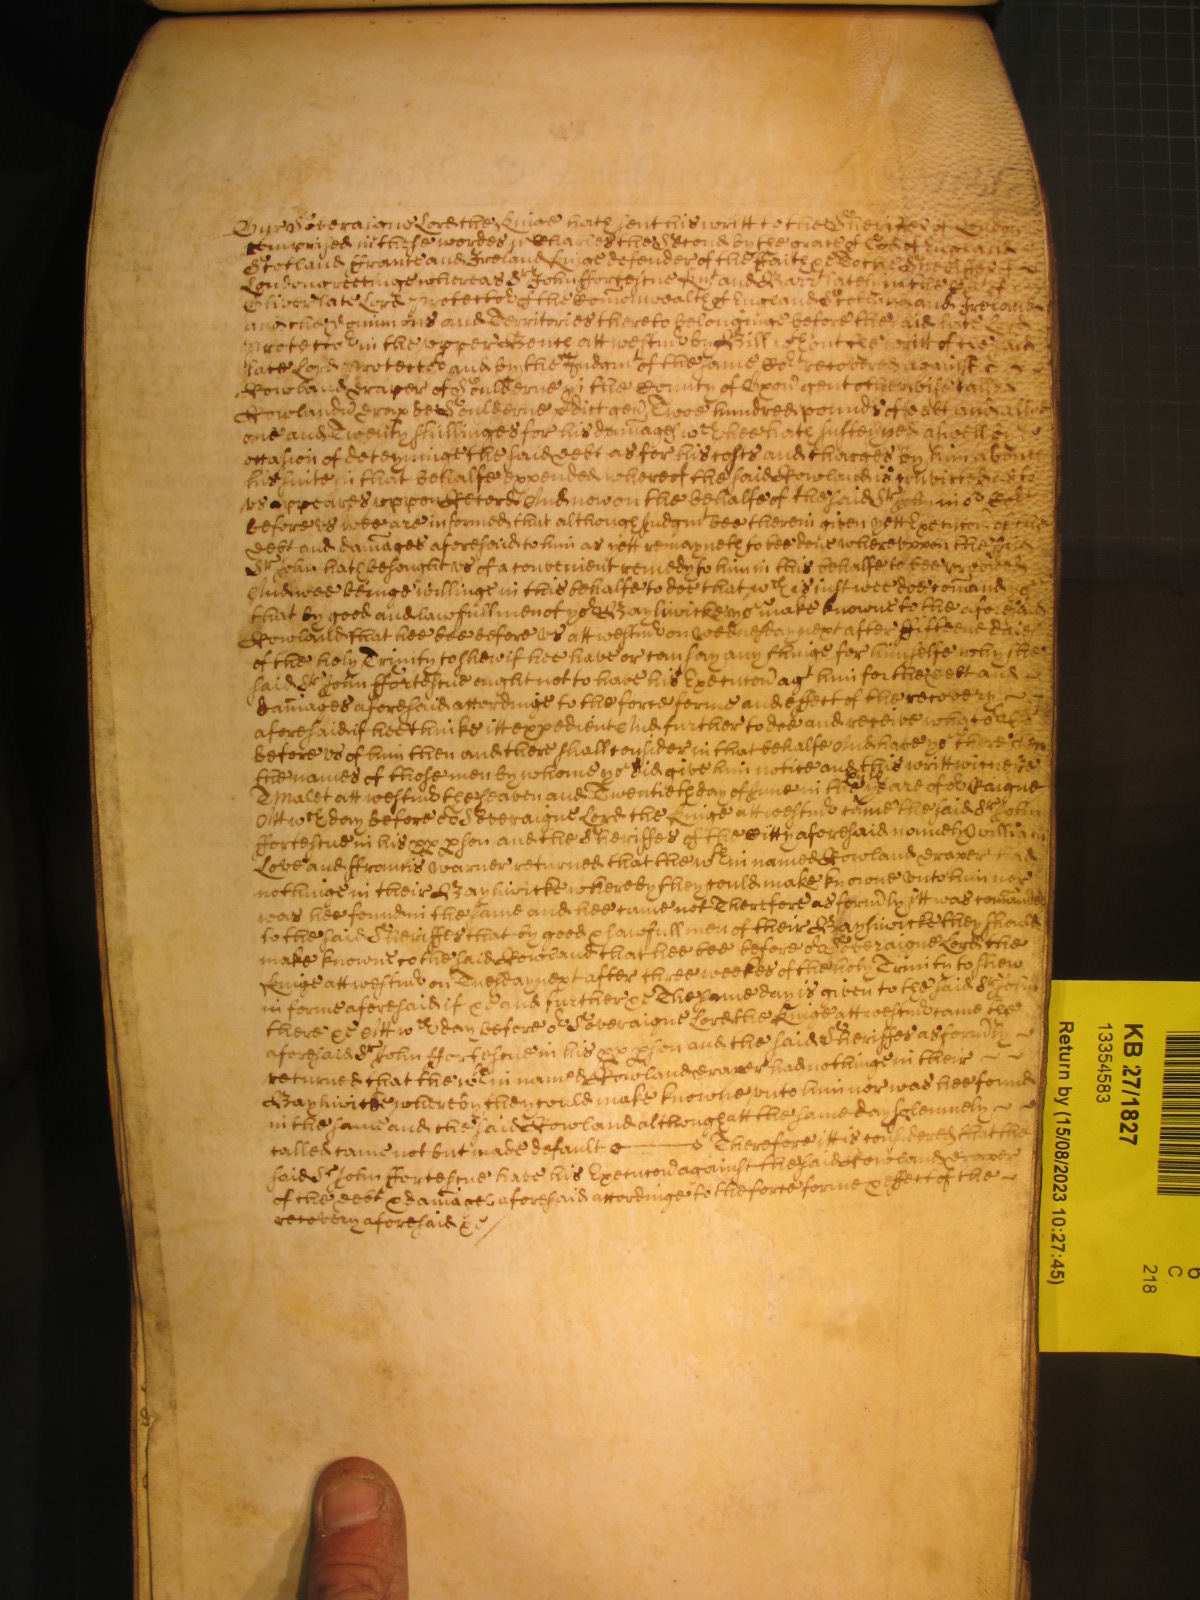 Our Soveraigne Lord the Kinge hath sent his writt to the Sheriffes of London
comprized in these wordes Charles the Second by the grace of God of England
Scotland ffrance and Ireland Kinge defender of the ffaith &c To the Sheriffes of
London greetinge whereas Sr John ffortescue Knt and Barrt lately in the
Oliver late Lord Protector of the Comonwealth of England Scotland and Ireland
and the Dominions and Territories thereto belonginge before the said late Lord
Protector in the upper Bench att westmr by Bill without the writt of the said
late Lord Protector and by the Judgmt of the same Court recovered against
Rowland Draper of Soulderne in the County of Oxon gent otherwise called
Rowland Draper de Soulderne gen Twoe hundred pounds of debt and alsoe
one and Twenty shillinges for his damages wch hee hath susteyned aswell by
occasion of deteyninge the said debt as for his costs and charges by him about
his suite in that behalfe expended whereof the said Rowland is convicted as to
us appeares uppon Record And now on the behalfe of the said Sr John in or Court
before us wee are informed that although Judgmt bee therein given yett Execucon of the
debt and damages aforesaid to him as yett remayneth to bee done whereuppon the said
Sr John hath besought us of a convenient remedy to him in this behalfe to bee provided
And wee beinge willinge in this behalfe to doe that wch is just wee doe comand yo
that by good and lawfull men of yor Bayliwicke yo make knowne to the aforesaid
Rowland that hee bee before us att westmr on wednesday next after fifteene daies
of the holy Trinity to shew if hee have or can say any thinge for himselfe why the
said Sr John ffortescue ought not to have his Execucon agt him for the debt and
damages aforesaid accordinge to the force forme and effect of the recovery
aforesaid if hee thinke itt expedient And further to doe and receive what or Court
before us of him then and there shall consider in that behalfe And have yo there then
the names of those men by whome yo did give him notice and this writt witnes
T Malet att westmr the seaven and Twentieth day of June in the yeare of or Raigne
Att wch day before or Soveraigne Lord the Kinge att westmr came the said Sr John
ffortescue in his pp pson and the Sheriffes of the Citty aforesaid namely William
Love and ffrancis Warner returned that the wthin named Rowland Draper had
nothinge in their Bayliwicke whereby they could make knowne unto him nor
was hee found in the same and hee came not Therefore as formly itt was comanded
to the said Sheriffes that by good & lawfull men of their Bayliwicke they should
make knowne to the said Rowland that hee bee before or Soveraigne Lord the
Kinge att westmr on Tuesday next after three weekes of the holy Trinity to shew
in forme aforesaid if &c and further &c The same day is given to the said Sr John
there &c Att wch day before or Soveraigne Lord the Kinge att westmr came the
aforesaid Sr John ffortescue in his pp pson and the said Sheriffes as formly
returned that the wthin named Rowland Draper had nothinge in their
Bayliwicke whereby they could make knowne unto him nor was hee found
in the same and the said Rowland although att the same day solemnely
called came not but made default Therefore itt is considered that the
said Sr John ffortescue have his Execucon against the said Rowland Draper
of the debt & damages aforesaid accordinge to the force forme & effect of the
recovery aforesaid &c
KB 27/1827
13354583
Return by (15/08/2023 10:27:45)
6
C
218